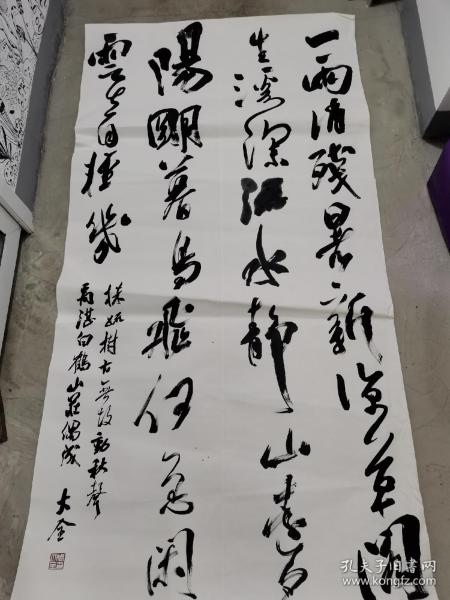 一雨消殘暑新涼草閣
生溪深流水靜山遠夕
陽明暮鳥飛何急閑
雲去自輕幾
株邨樹古無故動秋聲
高湛白鶴山莊偶成
大全
孔夫子旧书网
book.kongfz.com